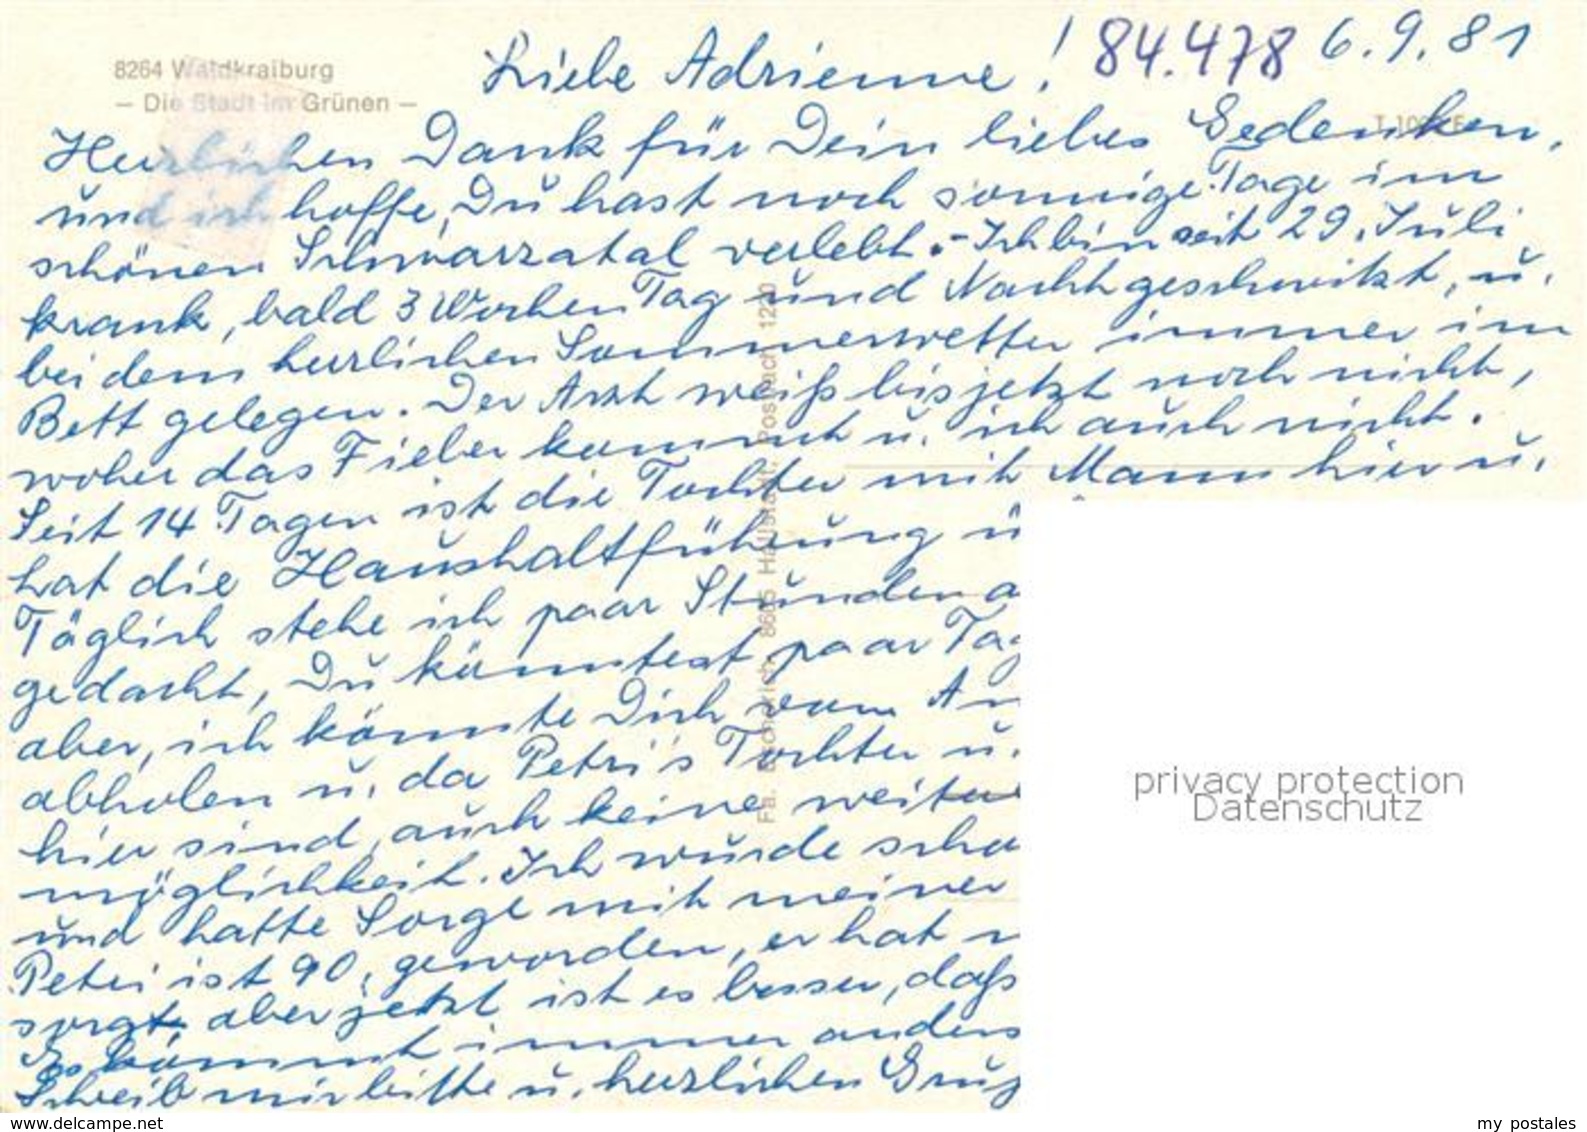 8264 Waldkraiburg
– Die Stadt im Grünen –
84.478 6.9.81
Liebe Adrienne!
T 1000 F
Herzlichen Dank für Dein liebes Gedenken,
und ich hoffe, Du hast noch sonnige Tage im
schönen Schwarzatal verlebt. – Ich bin seit 29. Juli
krank, bald 3 Wochen Tag und Nacht geschwitzt, u.
bei dem herrlichen Sommerwetter immer im
Bett gelegen. Der Arzt weiß bis jetzt noch nicht,
woher das Fieber kommt u. ich auch nicht.
Seit 14 Tagen ist die Tochter mit Mann hier u.
hat die Haushaltführung ü
Täglich stehe ich paar Stunden a
gedacht, Du könntest paar Tag
aber, ich könnte Dich vom An
abholen u. da Petri's Tochter u.
hier sind, auch keine weiter
möglichkeit. Ich wurde scho
und hatte Sorge mit meiner
Petri ist 90, geworden, er hat n
sorgt, aber jetzt ist es besser, daß
Es kommt immer anders
Schreib mir bitte u. herzlichen Gruß
Fa. 8605 Hallstadt, Postfach 1220
privacy protection
Datenschutz
www.delcampe.net
my postales